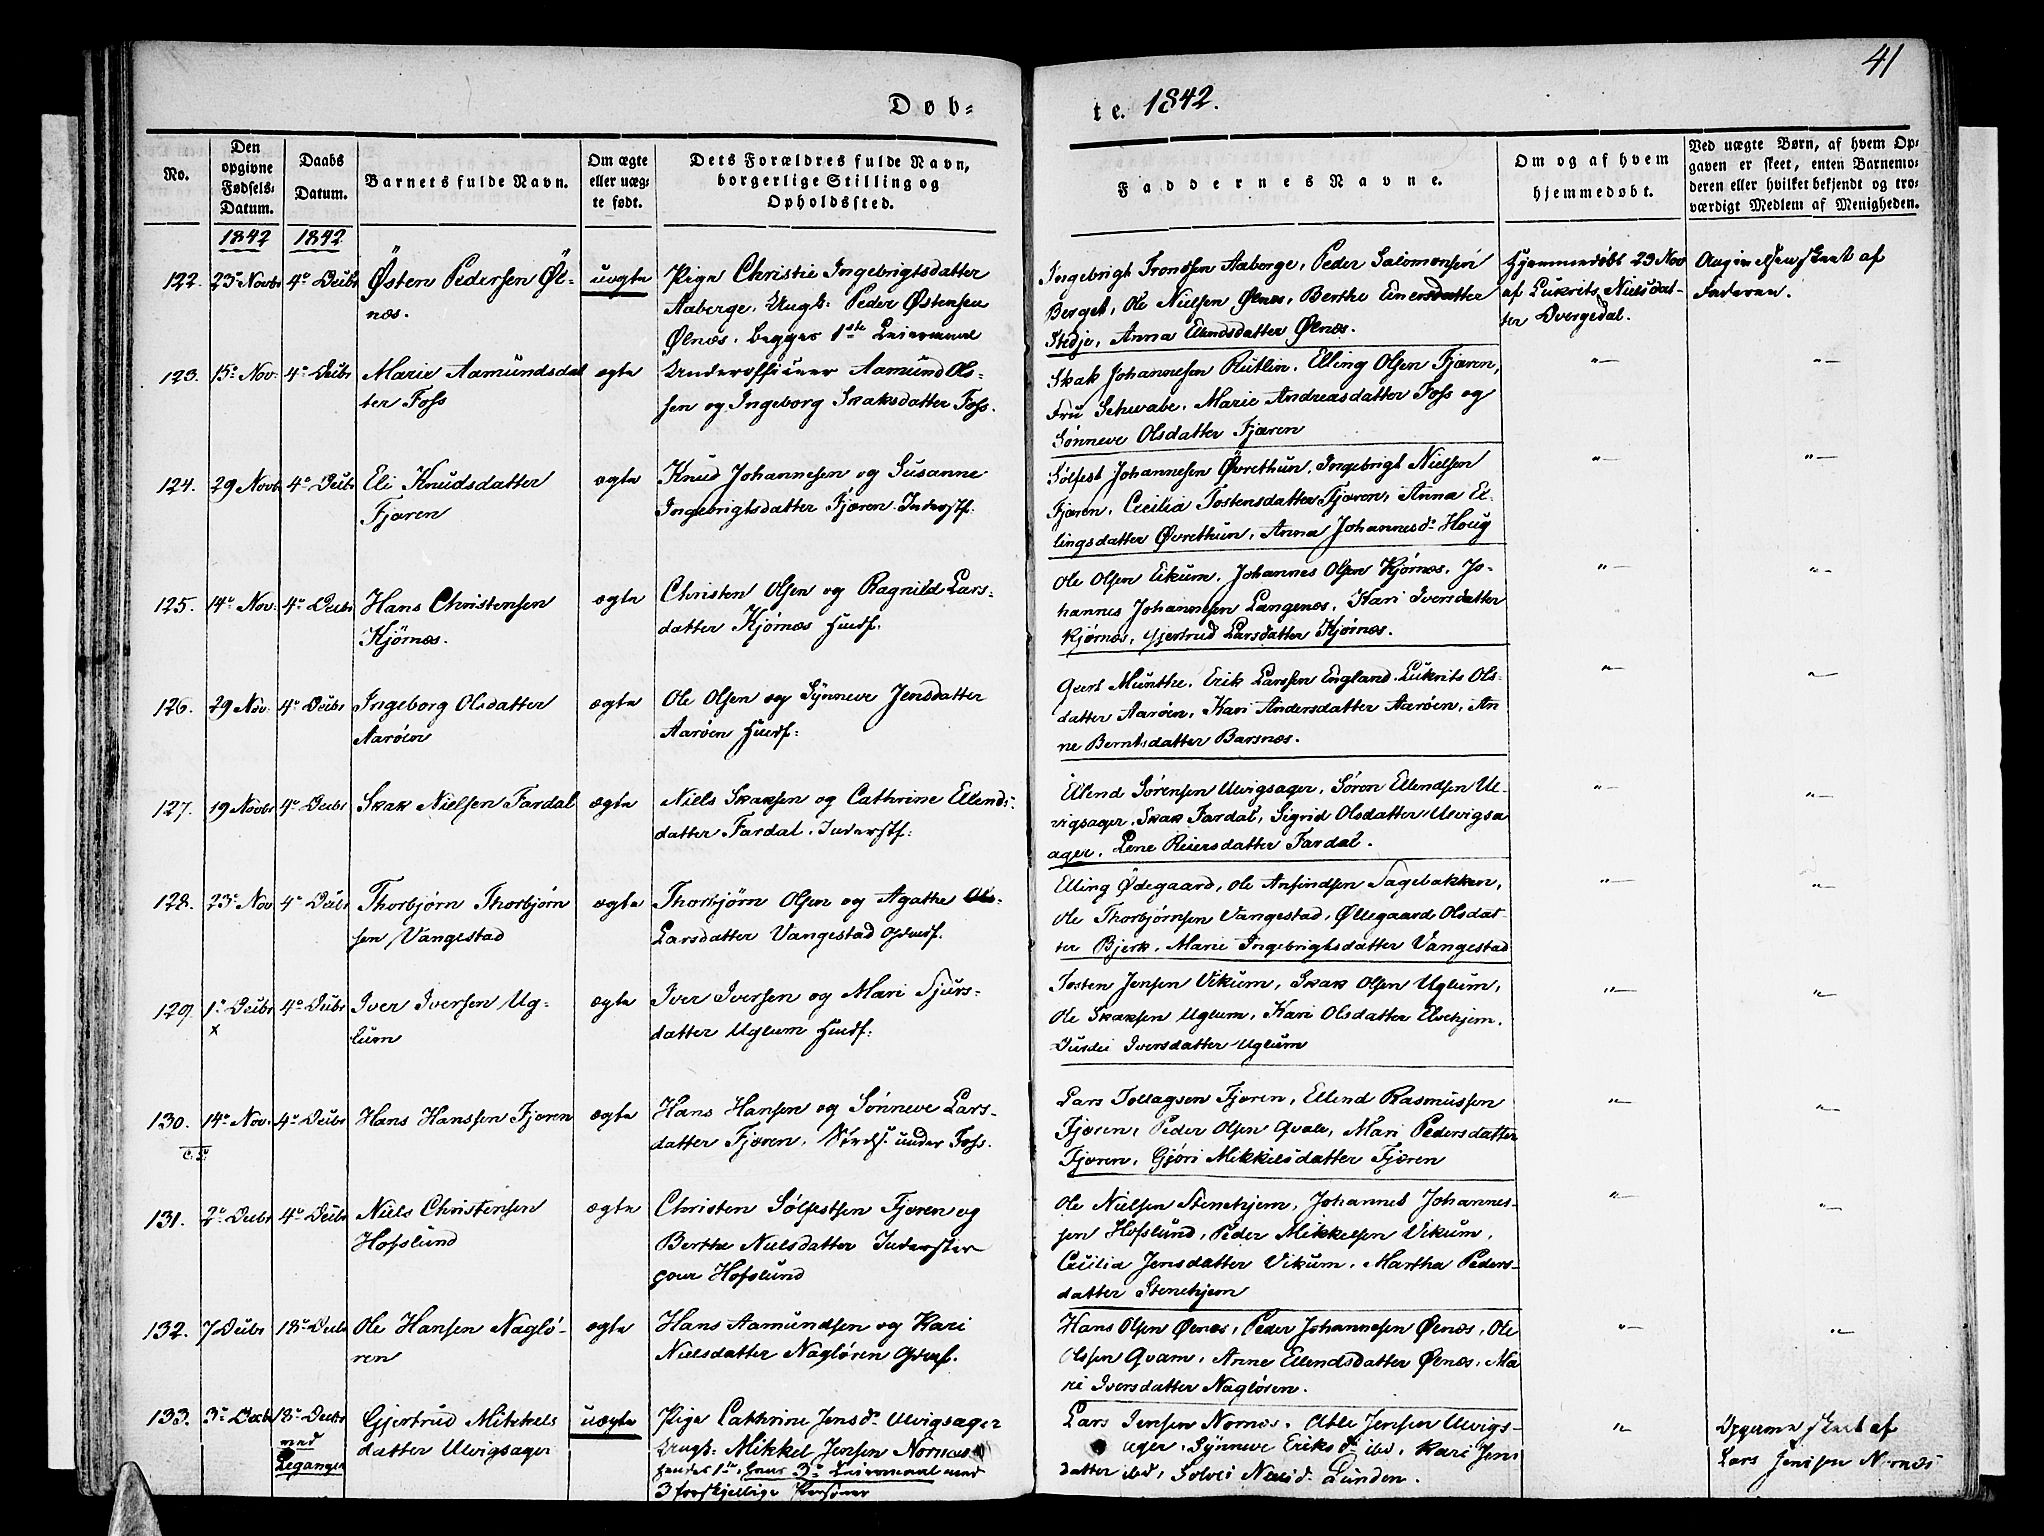 41
Døb-
te. 1842.
No.
Den
opgivne
Fødsels-
Datum.
Daabs
Datum.
Barnets fulde Navn.
Om ægte
eller uæg-
te født.
Dets Forældres fulde Navn,
borgerlige Stilling og
Opholdssted.
Faddernes Navne.
Om og af hvem
hjemmedøbt.
Ved uægte Børn, af hvem Op-
gaven er skeet, enten Barnemo-
deren eller hvilket bekjendt og tro-
værdigt Medlem af Menigheden.
1842
1842
122.
23de Novbr
4de Decbr
Østen Pedersen Øl-
næs.
uægte
Pige Christie Ingebrigtsdatter
Aaberge. Ungk: Peder Østensen
Ølnæs. begges 1ste Leiermaal
Ingebrigt Trondsen Aaberge, Peder Salomonsen
Berget, Ole Nielsen Ølnæs, Berthe Einersdatter
Stedje, Anna Ellendsdatter Ølnæs.
Hjemmedøbt 23 Nov
af Lukrits Nielsdat-
ter Dvergedal.
Angivelsen skeet af
Faderen.
123.
15de Nov.
4de Decbr
Marie Aamundsdat
ter Foss
ægte
Underofficeer Aamund Ols-
sen og Ingeborg Skaksdatter Foss.
Skak Johannesen Rutlin, Elling Olsen Fjæren,
Fru Schwabe, Marie Andreasdatter Foss og
Sønneve Olsdatter Fjæren
"—
"—
124.
29 Novb
4de Decbr
Eli Knudsdatter
Fjæren
ægte
Knud Johannesen og Susanne
Ingebrigtsdatter Fjæren. Inderstf.
Sølfest Johannesen Øvrethun, Ingebrigt Nielsen
Fjæren, Cecilia Tostensdatter Fjæren, Anna El-
lingsdatter Øvrethun, Anna Johannesdr Houg
"—
"—
125.
14de Nov.
4de Decbr
Hans Christensen
Kjørnæs.
ægte
Christen Olsen og Ragnild Lars-
datter Kjørnæs Huusf.
Ole Olsen Eikum, Johannes Olsen Kjørnæs, Jo-
hannes Johannesen Langenæs, Kari Iversdatter
Kjørnæs, Gjertrud Larsdatter Kjørnæs.
"—
"—
126.
29 Nov.
4de Decbr
Ingeborg Olsdatter
Aarøen
ægte
Ole Olsen og Synneve Jensdatter
Aarøen Huusf:
Geert Munthe. Erik Larssen England. Lukrits Ols-
datter Aarøen, Kari Andersdatter Aarøen, An
ne Berntsdatter Barsnæs.
"—
"—
127.
19 Novbr
4de Decbr
Skak Nielsen Fardal
ægte
Niels Skaksen og Cathrine Ellends-
datter Fardal. Inderstf:
Ellend Sørensen Ulvigsager, Søren Ellendsen Ul-
vigsager, Skak Fardal, Sigrid Olsdatter Ulvigsa
ager, Lene Reiersdatter Fardal.
"—
"—
128.
23de Nov
4de Decbr
Thorbjørn Thorbjørn
sen Vangestad
ægte
Thorbjørn Olsen og Agathe
Larsdatter Vangestad Gbrdf.
Elling Ødegaard, Ole Anfindsen Sagebakken,
Ole Thorbjørnsen Vangestad, Øllegaard Olsdat-
ter Bjerk, Marie Ingebrigtsdatter Vangestad
"—
"—
129.
1de Decbr
x
4de Decbr
Iver Iversen Ug-
lum
ægte
Iver Iversen og Mari Sjurs-
datter Uglum Huusf:
Tosten Jensen Vikum, Skak Olsen Uglum,
Ole Skaksen Uglum, Kari Olsdatter Elvehjem,
Iversdatter Uglum
"—
"—
130.
14de Nov.
4de Decbr
Hans Hanssen Fjæren
ægte
Hans Hansen og Sønneve Lars-
datter Fjæren. under Foss.
Lars Tollagsen Fjæren, Ellend Rasmussen
Fjæren, Peder Olsen Qvale, Mari Pedersdatter
Fjæren, Gjøri Mikkelsdatter Fjæren
"—
"—
131.
2de Decbr
4de Decbr
Niels Christensen
Hofslund
ægte
Christen Sølfestsen Fjæren og
Berthe Nielsdatter Inderster
paa Hofslund
Ole Nielsen Stenehjem, Johannes Johannes-
sen Hofslund, Peder Mikkelsen Vikum,
Cecilia Jensdatter Vikum, Martha Peders-
datter Stenehjem
"—
"—
132.
7 Decbr
18de Decb
Ole Hansen Nagló-
ren
ægte
Hans Aamundsen og Kari
Nielsdatter Nagløren Gbrdf.
Hans Olsen Ønæs, Peder Johannesen Ønæs, Ole
Olsen Qvam, Anne Ellendsdatter Ønæs, Ma
ri Iversdatter Nagløren.
"—
"—
133.
3de Decb
18de Decbr
ved
Leganger
Gjertrud Mikkels
datter Ulvigsager
uægte
Pige Cathrine Jensdr Ulvigsager
Ungk: Mikkel Jensen Nornæs
hendes 1ste, hans 3de Leiermaal med
3 forskjellige Personer
Lars Jensen Nornæs, Able Jensen Ulvigs-
ager, Synneve Eriksdr ibd, Kari Jens
datter ibd, Solvei Nielsdr Linden.
"—
Opgaven skeet af
Lars Jensen Nornæs